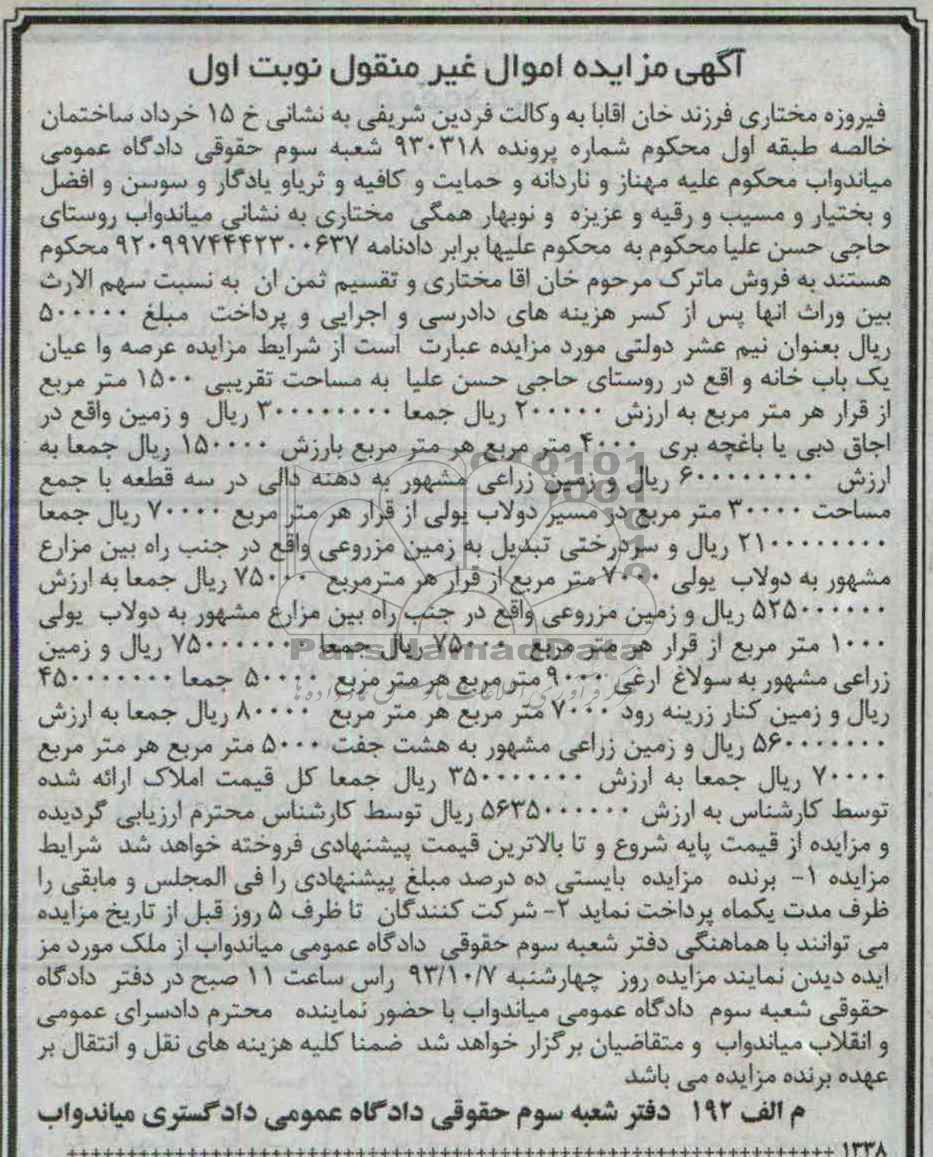 آگهی مزایده اموال غیر منقول نوبت اول
فیروزه مختاری فرزند خان اقابا به وکالت فردین شریفی به نشانی خ ۱۵ خرداد ساختمان
خالصه طبقه اول محکوم شماره پرونده ۹۳۰۳۱۸ شعبه سوم حقوقی دادگاه عمومی
میاندواب محکوم علیه مهناز و ناردانه و حمایت و کافیه و ثریاو یادگار و سوسن و افضل
و بختیار و مسیب و رقیه و عزیزه و نوبهار همگی مختاری به نشانی میاندواب روستای
حاجی حسن علیا محکوم به محکوم علیها برابر دادنامه ۹۲۰۹۹۷۴۴۴۲۳۰۰۶۳۷ محکوم
هستند به فروش ماترک مرحوم خان اقا مختاری و تقسیم ثمن ان به نسبت سهم الارث
بین وراث انها پس از کسر هزینه های دادرسی و اجرایی و پرداخت مبلغ ۵۰۰۰۰۰
ریال بعنوان نیم عشر دولتی مورد مزایده عبارت است از شرایط مزایده عرصه وا عیان
یک باب خانه و اقع در روستای حاجی حسن علیا به مساحت تقریبی ۱۵۰۰ متر مربع
از قرار هر متر مربع به ارزش ۲۰۰۰۰۰ ریال جمعا ۳۰۰۰۰۰۰۰۰ ریال و زمین واقع در
اجاق دبی یا باغچه بری ۴۰۰۰ متر مربع هر متر مربع بارزش ۱۵۰۰۰۰ ریال جمعا به
ارزش ۶۰۰۰۰۰۰۰۰ ریال و زمین زراعی مشهور به دهنه دالی در سه قطعه با جمع
مساحت ۳۰۰۰۰ متر مربع در مسیر دولاب یولی از قرار هر متر مربع ۷۰۰۰۰ ریال جمعا
۲۱۰۰۰۰۰۰۰۰ ریال و سردرختی تبدیل به زمین مزروعی واقع در جنب راه بین مزارع
مشهور به دولاب یولی ۷۰۰۰ متر مربع از قرار هر مترمربع ۷۵۰۰۰ ریال جمعا به ارزش
۵۲۵۰۰۰۰۰۰ ریال و زمین مزروعی واقع در جنب راه بین مزارع مشهور به دولاب یولی
۱۰۰۰ متر مربع از قرار هر متر مربع ۷۵۰۰۰ ریال جمعا ۷۵۰۰۰۰۰۰ ریال و زمین
زراعی مشهور به سولاغ ارغی ۹۰۰۰ متر مربع هر متر مربع ۵۰۰۰۰ جمعا ۴۵۰۰۰۰۰۰۰
ریال و زمین کنار زرینه رود ۷۰۰۰ متر مربع هر متر مربع ۸۰۰۰۰ ریال جمعا به ارزش
۵۶۰۰۰۰۰۰۰ ریال و زمین زراعی مشهور به هشت جفت ۵۰۰۰ متر مربع هر متر مربع
۷۰۰۰۰ ریال جمعا به ارزش ۳۵۰۰۰۰۰۰۰ ریال جمعا کل قیمت املاک ارائه شده
توسط کارشناس به ارزش ۵۶۳۵۰۰۰۰۰۰ ریال توسط کارشناس محترم ارزیابی گردیده
و مزایده از قیمت پایه شروع و تا بالاترین قیمت پیشنهادی فروخته خواهد شد شرایط
مزایده ۱- برنده مزایده بایستی ده درصد مبلغ پیشنهادی را فی المجلس و مابقی را
ظرف مدت یکماه پرداخت نماید ۲- شرکت کنندگان تا ظرف ۵ روز قبل از تاریخ مزایده
می توانند با هماهنگی دفتر شعبه سوم حقوقی دادگاه عمومی میاندواب از ملک مورد مز
ایده دیدن نمایند مزایده روز چهارشنبه ۹۳/۱۰/۷ راس ساعت ۱۱ صبح در دفتر دادگاه
حقوقی شعبه سوم دادگاه عمومی میاندواب با حضور نماینده محترم دادسرای عمومی
و انقلاب میاندواب و متقاضیان برگزار خواهد شد ضمنا کلیه هزینه های نقل و انتقال بر
عهده برنده مزایده می باشد
م الف ۱۹۲ دفتر شعبه سوم حقوقی دادگاه عمومی دادگستری میاندواب
۱۳۳۸
ParsNamadData